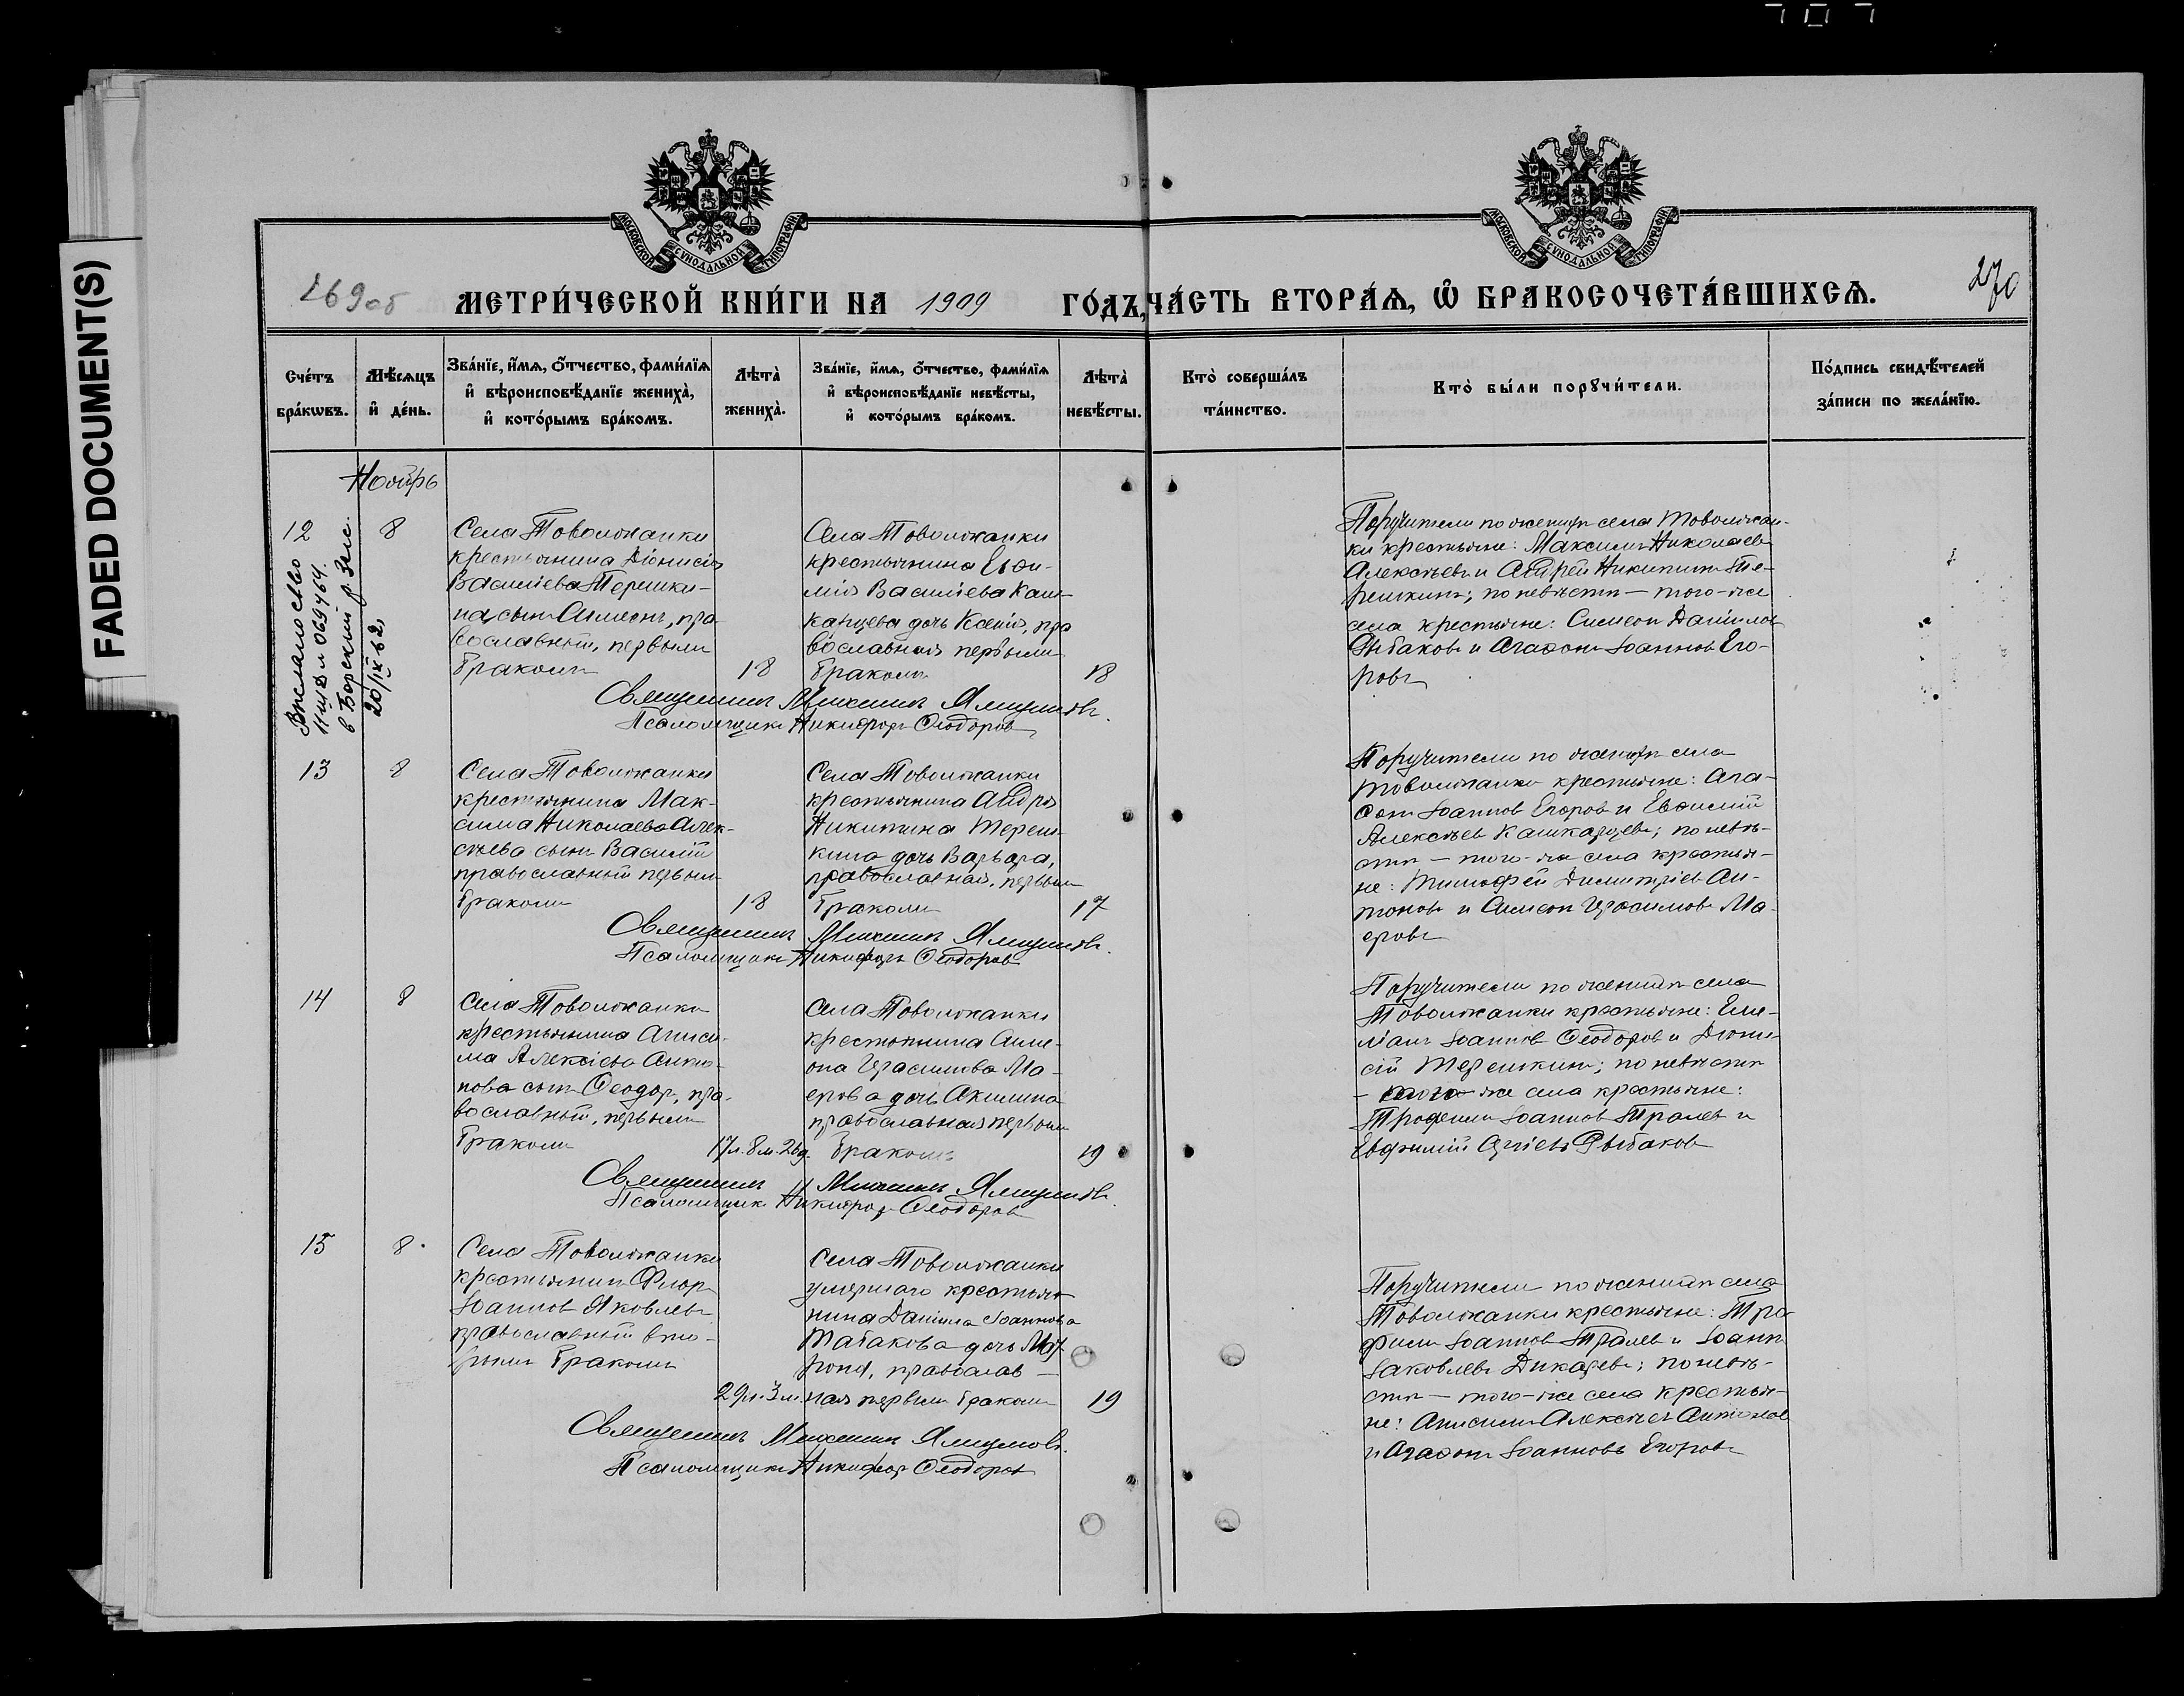 FADED DOCUMENT(S)
МОСКОВСКОЙ СѴНОДАЛЬНОЙ ТИПОГРАФІИ
МОСКОВСКОЙ СѴНОДАЛЬНОЙ ТИПОГРАФІИ
269об
МЕТРИ́ЧЕСКОЙ КНИ́ГИ НА 1909 ГО́ДЪ, ЧА́СТЬ ВТОРА́Ѧ, Ѽ БРАКОСОЧЕТА́ВШИХСѦ.
270
Сче́тъ бра́кѡвъ.
Мѣ́сѧцъ и҆ де́нь.
Зва́нїе, и҆́мѧ, ѻ҆́тчество, фами́лїѧ
и҆ вѣроисповѣ́данїе жениха̀,
и҆ кото́рымъ бра́комъ.
Лѣта̀ жениха̀.
Зва́нїе, и҆́мѧ, ѻ҆́тчество, фами́лїѧ
и҆ вѣроисповѣ́данїе невѣ́сты,
и҆ кото́рымъ бра́комъ.
Лѣта̀ невѣ́сты.
Кто̀ соверша́лъ та́инство.
Кто̀ бы́ли порꙋчи́тели.
По́дпись свидѣ́телей
за́писи по жела́нїю.
Ноябрь
12
8
Села Товолжанки
крестьянина Діонисія
Василіева Терешки-
на сынъ Симеонъ, пра
вославный, первымъ
бракомъ
18
Села Товолжанки
крестьянина Евѳи-
мія Василіева Каш-
карцева дочь Ксенія, пра
вославная первымъ
бракомъ
18
Священникъ Михаилъ
Псаломщикъ Никифоръ Ѳеодоровъ
Поручители по женихѣ села Товолжан-
ки крестьяне: Максимъ Николаевъ
Алексѣевъ и Андрей Никитинъ Те-
решкинъ; по невѣстѣ — того-же
села крестьяне: Симеонъ Даніиловъ
Рыбаковъ и Агаѳонъ Іоанновъ Его-
ровъ
13
8
Села Товолжанки
крестьянина Мак-
сима Николаева Алек-
сѣева сынъ Василій
православный первымъ
бракомъ
18
Села Товолжанки
крестьянина Андрея
Никитина Тереш-
кина дочь Варвара,
православная, первымъ
бракомъ
17
Священникъ Михаилъ
Псаломщикъ Никифоръ Ѳеодоровъ
Поручители по женихѣ села
Товолжанки крестьяне: Ага-
ѳонъ Іоанновъ Егоровъ и Евѳимій
Алексѣевъ Кашкарцевъ; по невѣ-
стѣ — того-же села крестья-
не: Тимофей Димитріевъ Ан-
тоновъ и Симеонъ Герасимовъ Ма-
еровъ
14
8
Села Товолжанки
крестьянина Аниси-
ма Алексіева Анто-
нова сынъ Ѳеодоръ, пра-
вославный, первымъ
бракомъ
17л. 8м. 26д.
Села Товолжанки
крестьянина Симе-
она Герасимова Ма-
ерова дочь Акилина
православная первымъ
бракомъ
19
Священникъ Михаилъ
Псаломщикъ Никифоръ Ѳеодоровъ
Поручители по женихѣ села
Товолжанки крестьяне: Еми-
ліанъ Іоанновъ Ѳеодоровъ и Діони-
сій Терешкинъ; по невѣстѣ
- того-же села крестьяне:
Трофимъ Іоанновъ Тралевъ и
Евфимій Рыбаковъ
15
8
Села Товолжанки
крестьянинъ Флоръ
Іоанновъ Яковлевъ
православный вто-
рымъ бракомъ
29л. 3м.
Села Товолжанки
умершаго крестья-
нина Даніила Іоаннова
Табакова дочь Мат
рона, православ-
ная первымъ бракомъ
19
Священникъ Михаилъ
Псаломщикъ Никифоръ Ѳеодоровъ
Поручители по женихѣ села
Товолжанки крестьяне: Тро
фимъ Іоанновъ Тралевъ и Іоаннъ
Іаковлевъ Дикаревъ; по невѣ-
стѣ — того-же села крестья-
не: Анисимъ Алексѣевъ Антоновъ
и Агаѳонъ Іоанновъ Егоровъ
069464
в Борский р. Загс.
20/IX 62,